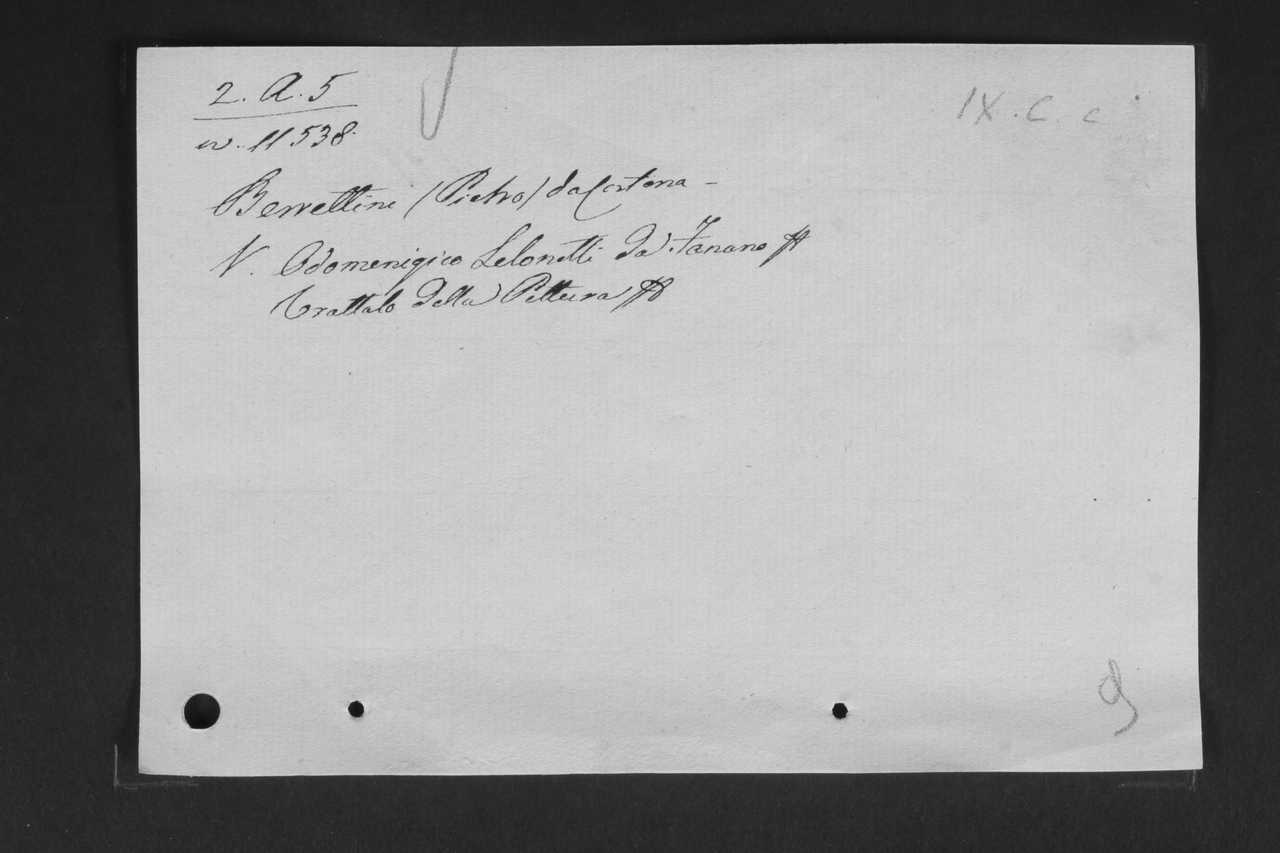 2. A. 5
IX. C. c
n. 11538.
Berrettini (Pietro) da Cortona -
V. Odomenigico Lelonotti da Fanano #
Trattato della Pittura